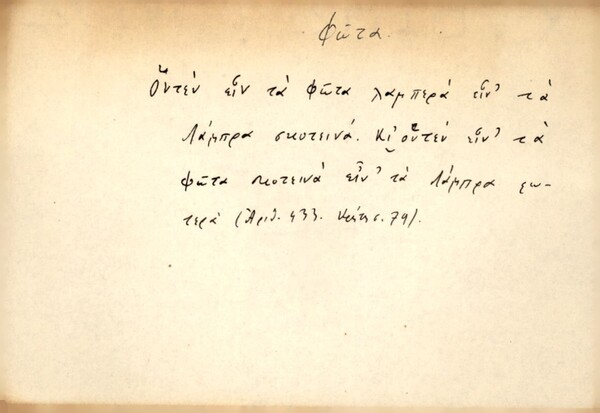 Φῶτα.
Ὅντεν εἶν τὰ φῶτα λαμπερὰ εἶν' τὰ
Λάμπρα σκοτεινά. Κι' ὅντεν εἶν' τὰ
φῶτα σκοτεινὰ εἶν' τὰ Λάμπρα φω-
τερὰ (Ἀριθ. 433. Κρήτη σ. 79).